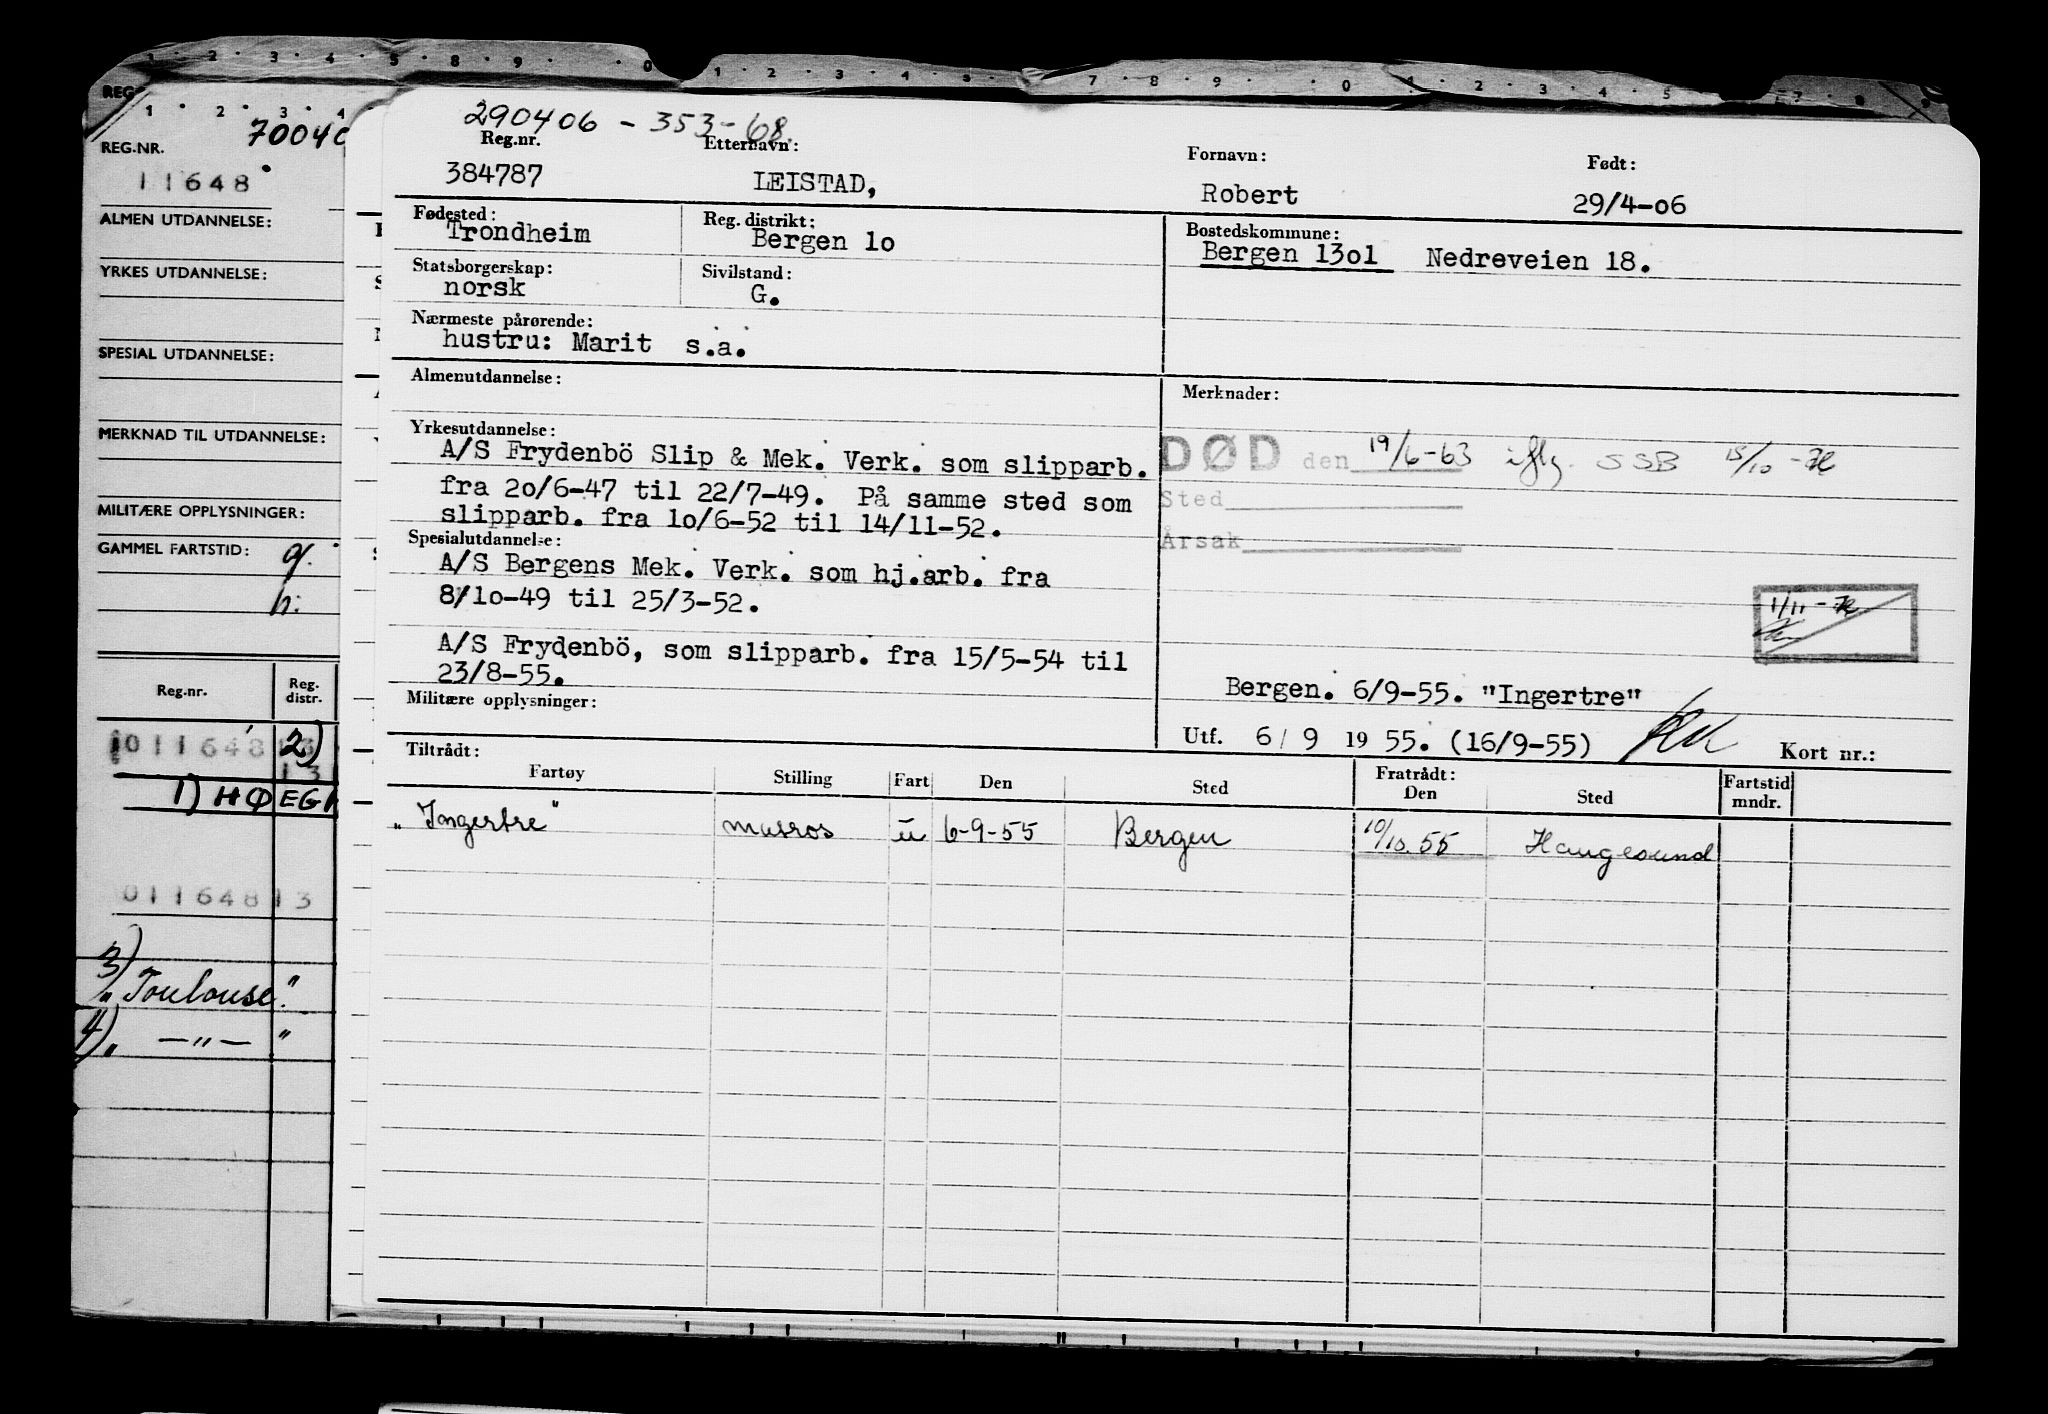 1 · 2 · 3 · 4 · 5 · 8 · 9 · 0 1 · 2 · 3 · 4 · 5 · 7 · 8 · 9 · 0 1 · 2 · 3 · 4 · 5 7 · 8 9
REG
1 • 2 • 3 • 4
70040
REG.NR.
11648
ALMEN UTDANNELSE:
YRKES UTDANNELSE:
SPESIAL UTDANNELSE:
MERKNAD TIL UTDANNELSE:
MILITÆRE OPPLYSNINGER:
GAMMEL FARTSTID: g:
h:
Reg.nr. Reg. distr.
011648 13 2)
13
1) HØEGH
01164813
3)
"Toulouse"
4) " —"— "
290406 - 353-68.
Reg.nr. Etternavn: Fornavn: Født:
384787 LEISTAD, Robert 29/4-06
Fødested: Reg. distrikt: Bostedskommune:
Trondheim Bergen 1o Bergen 13o1 Nedreveien 18.
Statsborgerskap: Sivilstand:
norsk G.
Nærmeste pårørende:
hustru: Marit s.a.
Almenutdannelse: Merknader:
Yrkesutdannelse:
A/S Frydenbö Slip & Mek. Verk. som slipparb.
fra 2o/6-47 til 22/7-49. På samme sted som
slipparb. fra 1o/6-52 til 14/11-52.
Spesialutdannelse:
A/S Bergens Mek. Verk. som hj.arb. fra
8/1o-49 til 25/3-52.
A/S Frydenbö, som slipparb. fra 15/5-54 til
23/8-55.
Militære opplysninger:
DØD den 19/6-63 iflg. SSB 15/10
Sted
Årsak
1/11
Bergen. 6/9-55. "Ingertre"
Utf. 6/9 19 55. (16/9-55) Kort nr.:
Tiltrådt: Fratrådt:
Fartøy Stilling Fart Den Sted Den Sted Fartstid mndr.
"Ingertre" matros u 6-9-55 Bergen 10/10.55 Haugesund